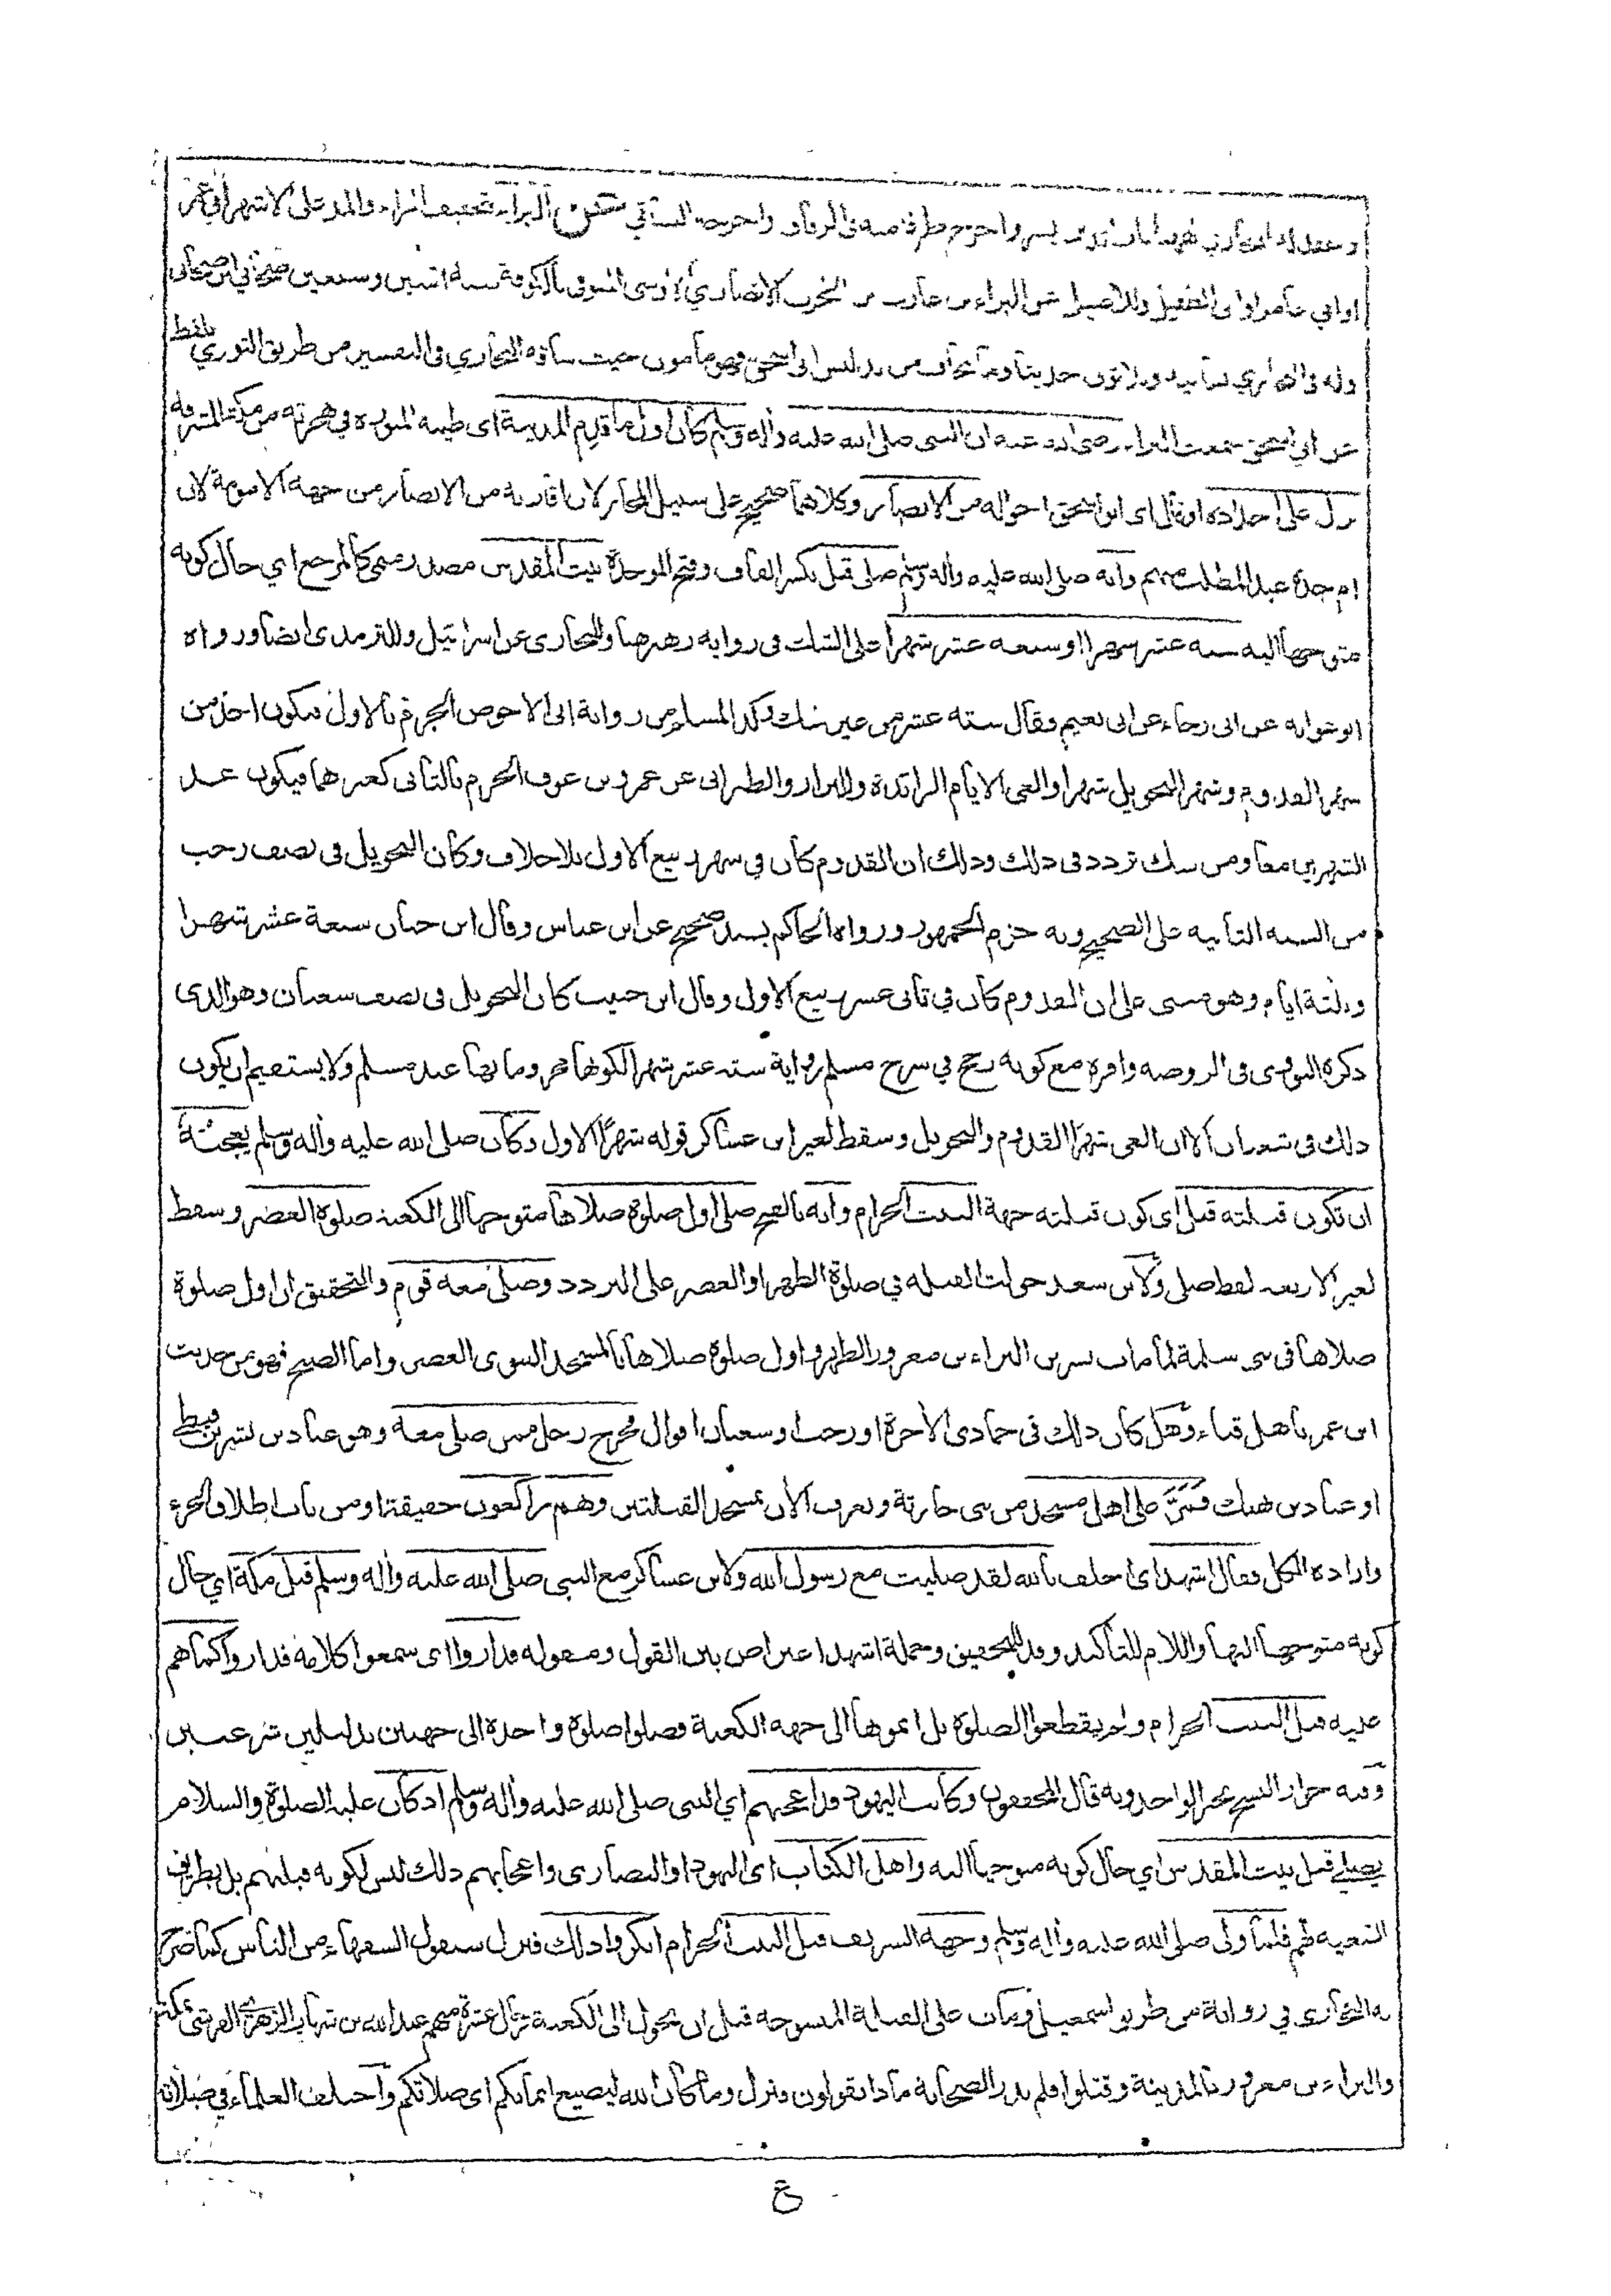 وعقد له البخاري واخرجه النسائي عن البراء بتخفيف الراء والمد على الاشهر ابي عمر
او ابي عامر او ابي الطفيل وللاصيلي عن البراء بن عازب بن الحرث الانصاري الاوسي المتوفى بالكوفة سنة اثنين وسبعين صحابي ابن صحابي
وله في البخاري ثمانية وثلاثون حديثا وما يخاف من تدليس ابي اسحق فهو مأمون حيث ساقه البخاري في التفسير من طريق الثوري بلفظ
عن ابي اسحق سمعت البراء رضي الله عنه ان النبي صلى الله عليه وآله وسلم كان اول ما قدم المدينة اي طيبة المنورة في هجرته من مكة المشرفة
نزل على اجداده او قال اي ابو اسحق اخواله من الانصار وكلاهما صحيح على سبيل المجاز لان اقاربه من الانصار من جهة الامومة لان
ام جده عبد المطلب منهم وانه صلى الله عليه وآله وسلم صلى قبل بكسر القاف وفتح الموحدة بيت المقدس مصدر ميمي كالمرجع اي حال كونه
متوجها اليه ستة عشر شهرا او سبعة عشر شهرا على الشك في رواية زهير هنا وللبخاري عن اسرائيل وللترمذي ايضا ورواه
ابو عوانه عن ابي رجاء عن ابي نعيم فقال ستة عشر من غير شك وكذا لمسلم من رواية ابي الاحوص الجزم بالاول فيكون اخذ من
شهر القدوم وشهر التحويل شهرا والغي الايام الزائدة وللبزار والطبراني عن عمرو بن عوف الجزم بالثاني كغيرهما فيكون عد
الشهرين معا ومن شك تردد في ذلك وذلك ان القدوم كان في شهر ربيع الاول بلا خلاف وكان التحويل في نصف رجب
من السنة الثانية على الصحيح وبه جزم الجمهور ورواه الحاكم بسند صحيح عن ابن عباس وقال ابن حبان سبعة عشر شهرا
وثلثة ايام وهو مبني على ان القدوم كان في ثاني عشر ربيع الاول وقال ابن حبيب كان التحويل في نصف شعبان وهو الذي
ذكره النووي في الروضه واقره مع كونه رجح في شرح مسلم رواية ستة عشر شهرا لكونها مجزوما بها عند مسلم ولا يستقيم ان يكون
ذلك في شعبان الا ان الغي شهرا القدوم والتحويل وسقط لغير ابن عساكر قوله شهرا الاول وكان صلى الله عليه وآله وسلم يعجبه
ان تكون قبلته قبل اي كون قبلته جهة البيت الحرام وانه بالفتح صلى اول صلوة صلاها متوجها الى الكعبة صلوة العصر وسقط
لغير الاربعه لفظ صلى ولابن سعد حولت القبله في صلوة الظهر او العصر على التردد وصلى معه قوم والتحقيق ان اول صلوة
صلاها في بني سلمة لما مات بشر بن البراء بن معرور الظهر واول صلوة صلاها بالمسجد النبوي العصر واما الصبح فهو من حديث
ابن عمر باهل قباء وهل كان ذلك في جمادى الاخرة او رجب او شعبان اقوال فخرج رجل ممن صلى معه وهو عباد بن بشر بن قيظي
او عباد بن نهيك فمر على اهل مسجد من بني حارثة ويعرف الان بمسجد القبلتين وهم راكعون حقيقة او من باب اطلاق الجزء
وارادة الكل فقال اشهد اي احلف بالله لقد صليت مع رسول الله ولابن عساكر مع النبي صلى الله عليه وآله وسلم قبل مكة اي حال
كونه متوجها اليها واللام للتأكيد وقد للتحقيق وجملة اشهد اعتراض بين القول ومقوله فداروا اي سمعوا كلامه فداروا كما هم
عليه قبل البيت الحرام ولم يقطعوا الصلوة بل اتموها الى جهة الكعبة فصلوا صلوة واحدة الى جهتين بدليلين شرعيين
وفيه جواز النسخ بخبر الواحد وبه قال المحققون وكانت اليهود قد اعجبهم اي النبي صلى الله عليه وآله وسلم اذ كان عليه الصلوة والسلام
يصلي قبل بيت المقدس اي حال كونه متوجها اليه واهل الكتاب اي اليهود او النصارى واعجابهم ذلك ليس لكونه قبلتهم بل بطريق
التبعيه لهم فلما ولى صلى الله عليه وآله وسلم وجهه الشريف قبل البيت الحرام انكروا ذلك فنزل سيقول السفهاء من الناس كما صرح
به البخاري في رواية من طريق اسمعيل ومات على القبلة المنسوخه قبل ان تحول الى الكعبة رجال عشرة منهم عبد الله بن شهاب الزهري القرشي بمكة
والبراء بن معرور بالمدينة وقتلوا فلم يدر الصحابة ماذا يقولون فنزل وما كان الله ليضيع ايمانكم اي صلاتكم واختلف العلماء في صلاته